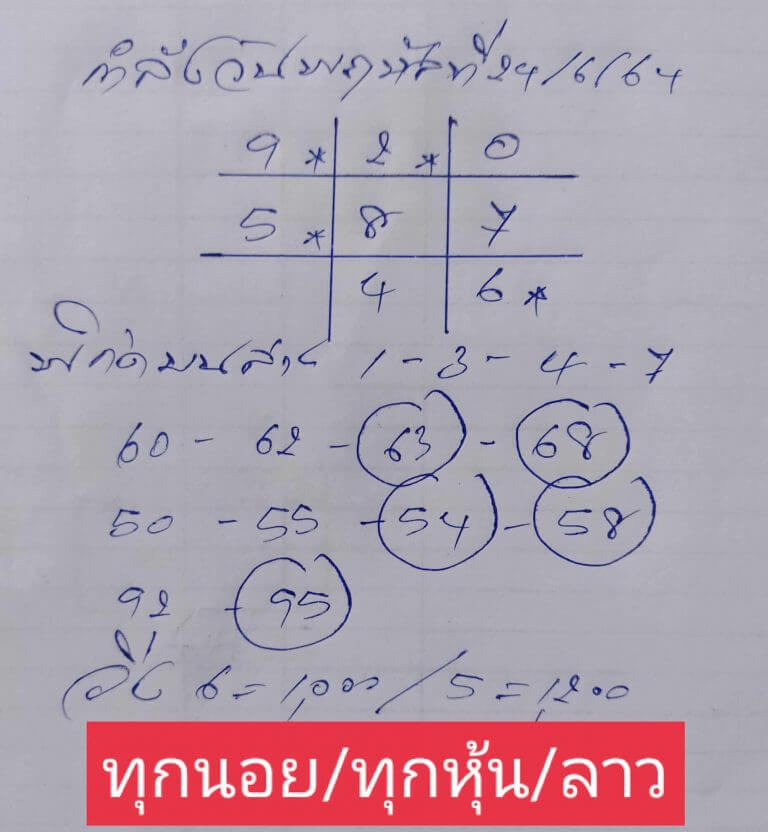 กำลังวันพฤหัสที่ 24/6/64
9 * 2 * 0
5 * 8 7
4 6 *
1 - 3 - 4 - 7
60 - 62 - 63 - 68
50 - 55 - 54 - 58
92 - 95
วิ่ง 6 = 1,000 / 5 = 1,200
ทุกนอย/ทุกหุ้น/ลาว